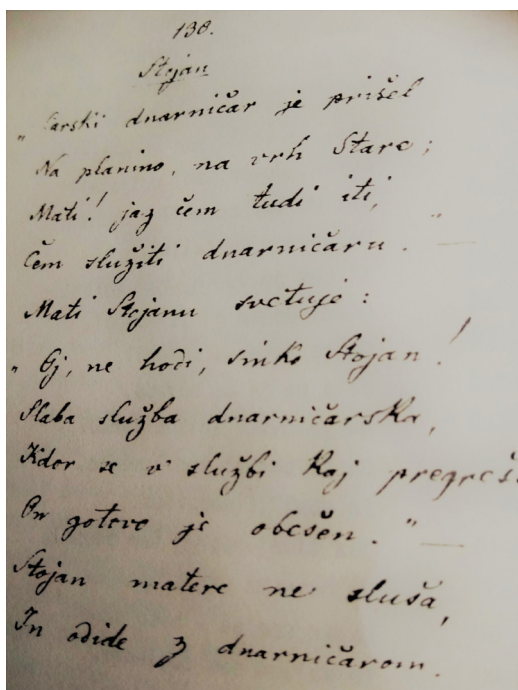 138.
Stojan
„Carski dnarničar je prišel
Na planino, na vrh Stare;
Mati! jaz čem tudi iti,
Čem služiti dnarničaru." —
Mati Stojanu svetuje:
„Oj, ne hodi, sinko Stojan!
Slaba služba dnarničarska,
Kdor se v službi kaj pregreši
On gotovo je obešen." —
Stojan matere ne sluša,
In odide z dnarničarom.